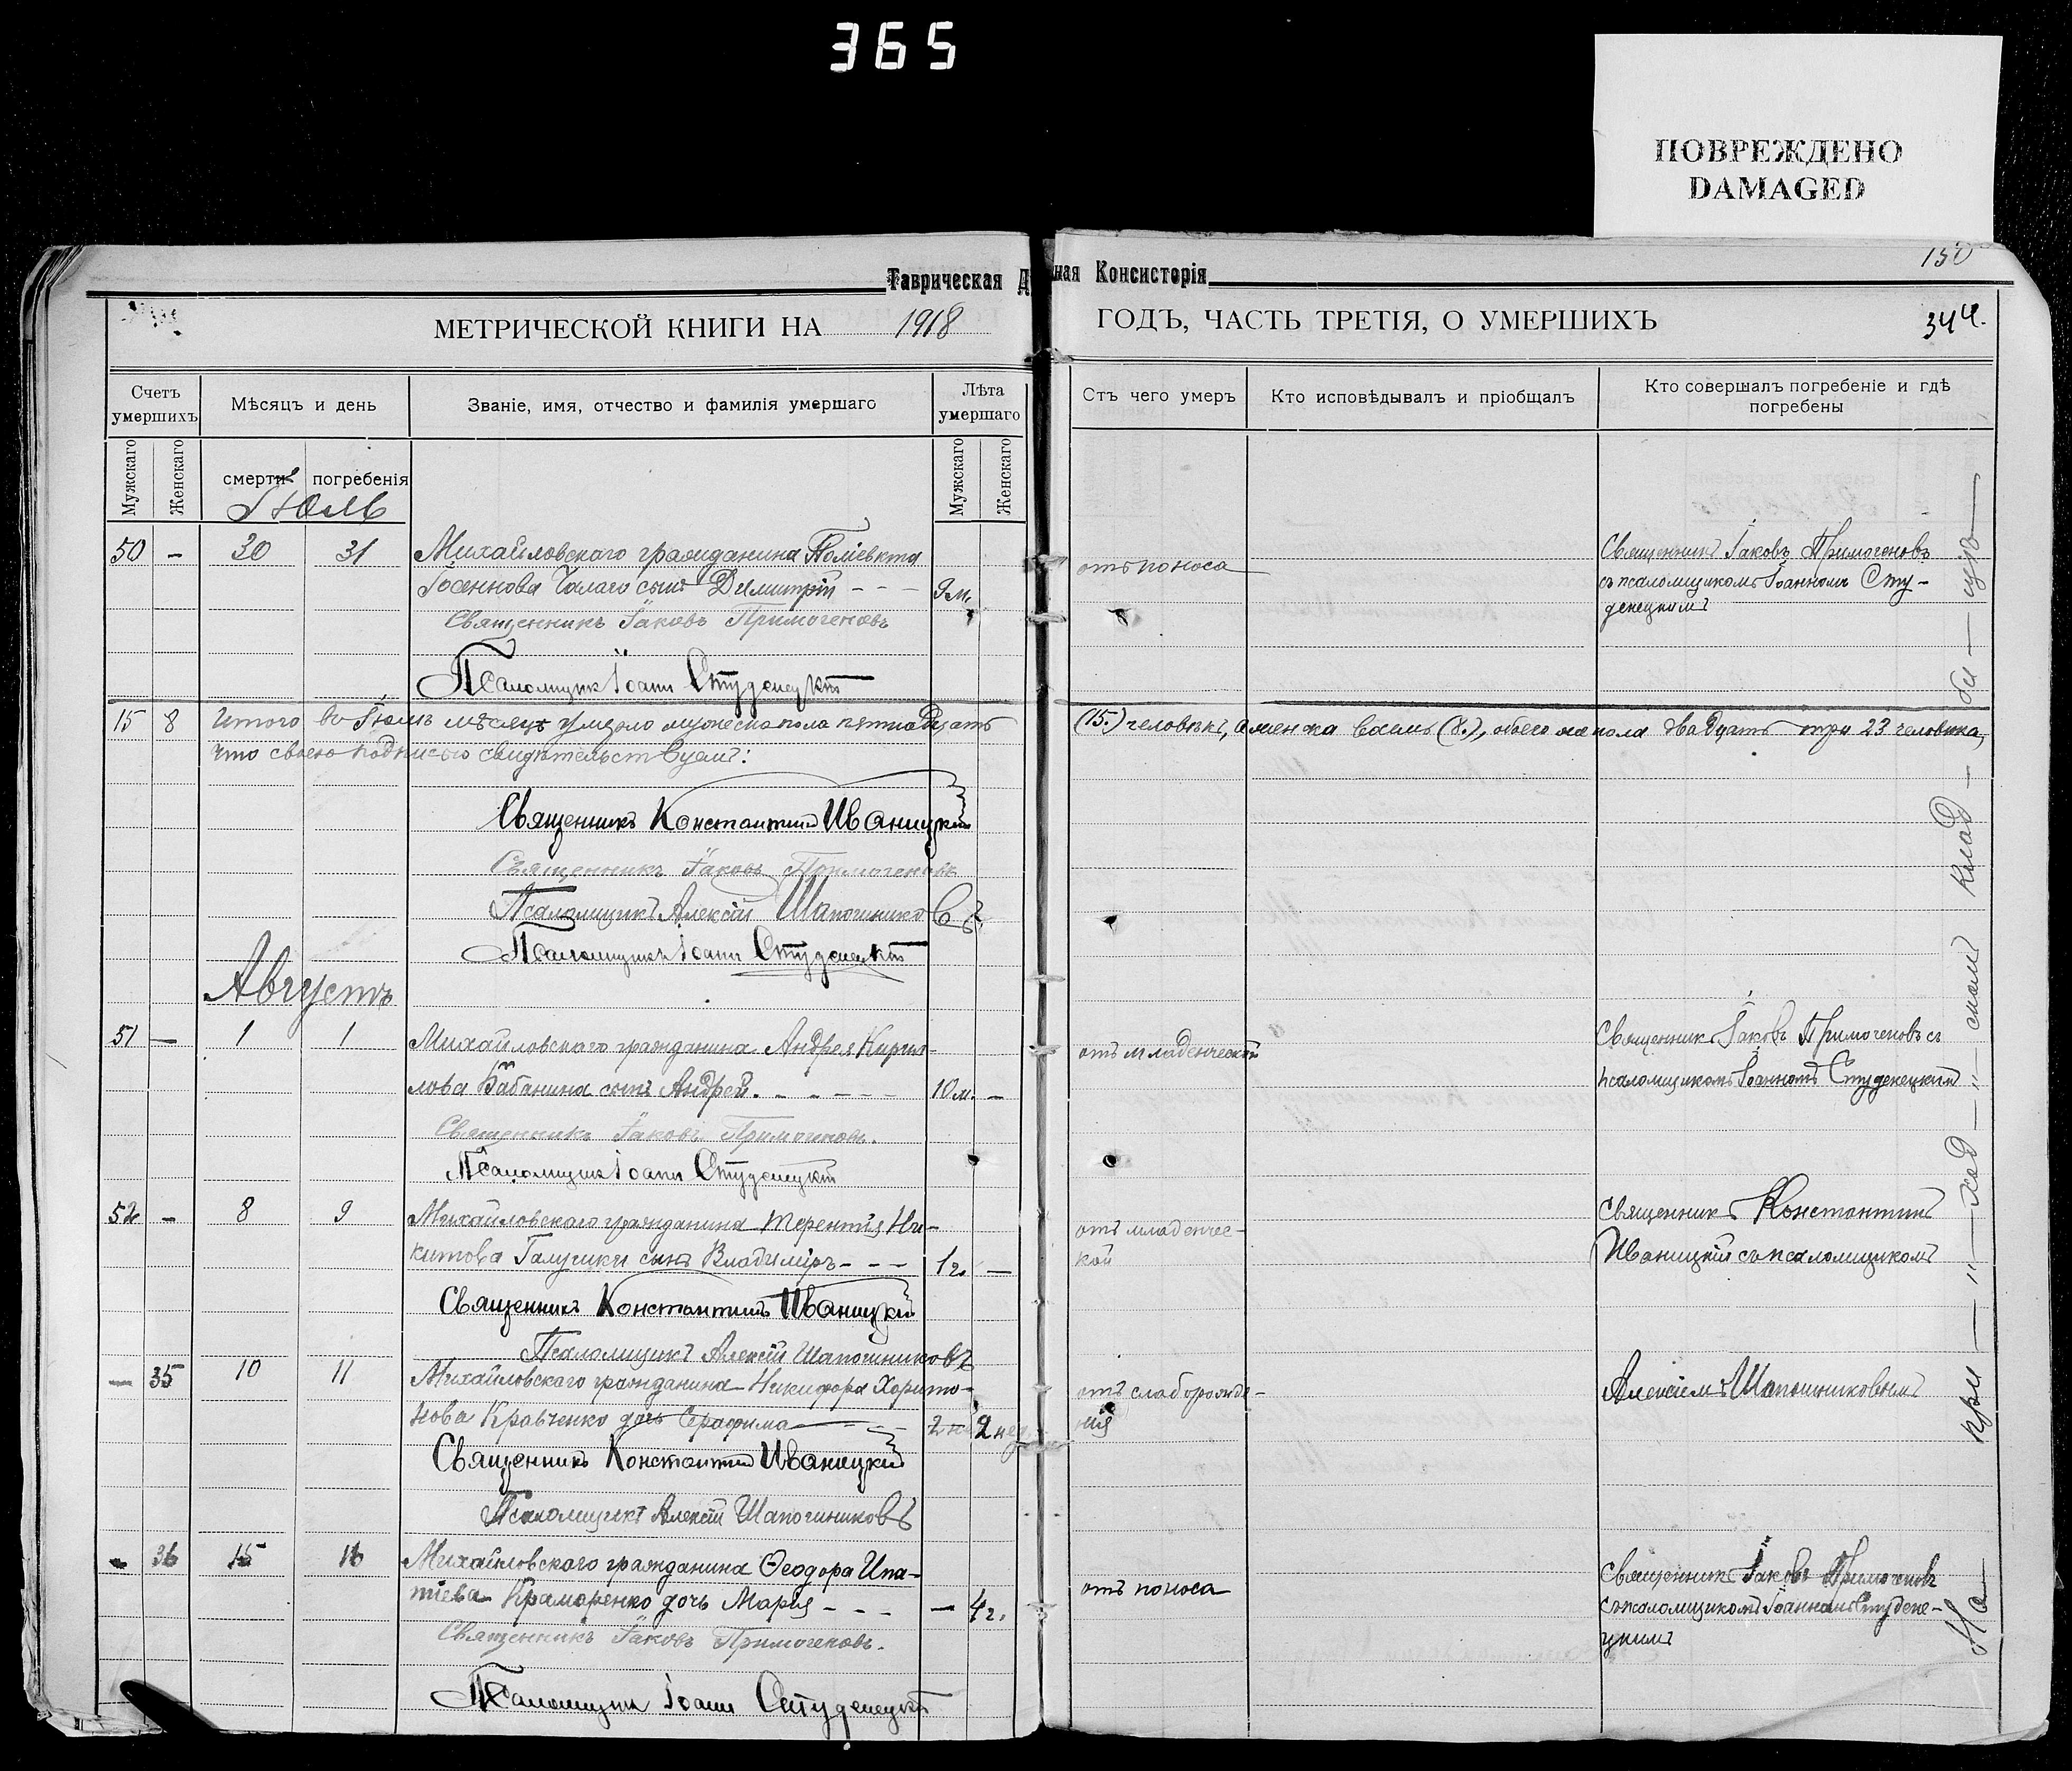 365
ПОВРЕЖДЕНО
DAMAGED
150
Таврическая Д ная Консисторія
МЕТРИЧЕСКОЙ КНИГИ НА 1918 ГОДЪ, ЧАСТЬ ТРЕТІЯ, О УМЕРШИХЪ 344.
Счетъ умершихъ
Мѣсяцъ и день
Званіе, имя, отчество и фамилія умершаго
Лѣта умершаго
Мужскаго
Женскаго
смерти
погребенія
Мужскаго
Женскаго
Отъ чего умеръ
Кто исповѣдывалъ и пріобщалъ
Кто совершалъ погребеніе и гдѣ
погребены
Іюль
50 - 30 31 Михайловскаго гражданина Поліевкта
Іоаннова Чалаго сынъ Димитрій - - - 9 м.
отъ поноса
Священникъ Іаковъ Примогеновъ
съ псаломщикомъ Іоанномъ Сту-
денецкимъ
Священникъ Іаковъ Примогеновъ
Псаломщикъ Іоаннъ Студенецкій
15 8 Итого въ Іюлѣ мѣсяцѣ умерло мужеска пола пятнадцать (15.) человѣкъ, а женска восемь (8.), обоего же пола двадцать три 23 человѣка,
что своею подписью свидѣтельствуемъ:
Священникъ Константинъ Иваницкій
Священникъ Іаковъ Примогеновъ
Псаломщикъ Алексій Шапошниковъ
Псаломщикъ Іоаннъ Студенецкій
Августъ
51 — 1 1 Михайловскаго гражданина Андрея Кирил-
лова Бабанина сынъ Андрей. - - - - - 10 м. -
отъ младенческой
Священникъ Іаковъ Примогеновъ съ
псаломщикомъ Іоанномъ Студенецкимъ
Священникъ Іаковъ Примогеновъ.
Псаломщикъ Іоаннъ Студенецкій
52 - 8 9 Михайловскаго гражданина Терентія Ни-
китова Галушки сынъ Владиміръ - - - 1 г. —
отъ младенчес-
кой
Священникъ Константинъ
Иваницкій съ псаломщикомъ
Священникъ Константинъ Иваницкій
Псаломщикъ Алексій Шапошниковъ
— 35 10 11 Михайловскаго гражданина Никифора Харито-
нова Кравченко дочь Серафима 2 нед.
отъ слаборожде-
нія
Алексіемъ Шапошниковымъ
Священникъ Константинъ Иваницкій
Псаломщикъ Алексій Шапошниковъ
- 36 15 16 Михайловскаго гражданина Ѳеодора Ипа-
тіева Краморенко дочь Марія - - - — 4 г.
отъ поноса
Священникъ Іаковъ Примогеновъ
съ псаломщикомъ Іоанномъ Студене-
цкимъ
Священникъ Іаковъ Примогеновъ.
Псаломщикъ Іоаннъ Студенецкій
На — при — " — ход — " — скомъ клад — би — щѣ —